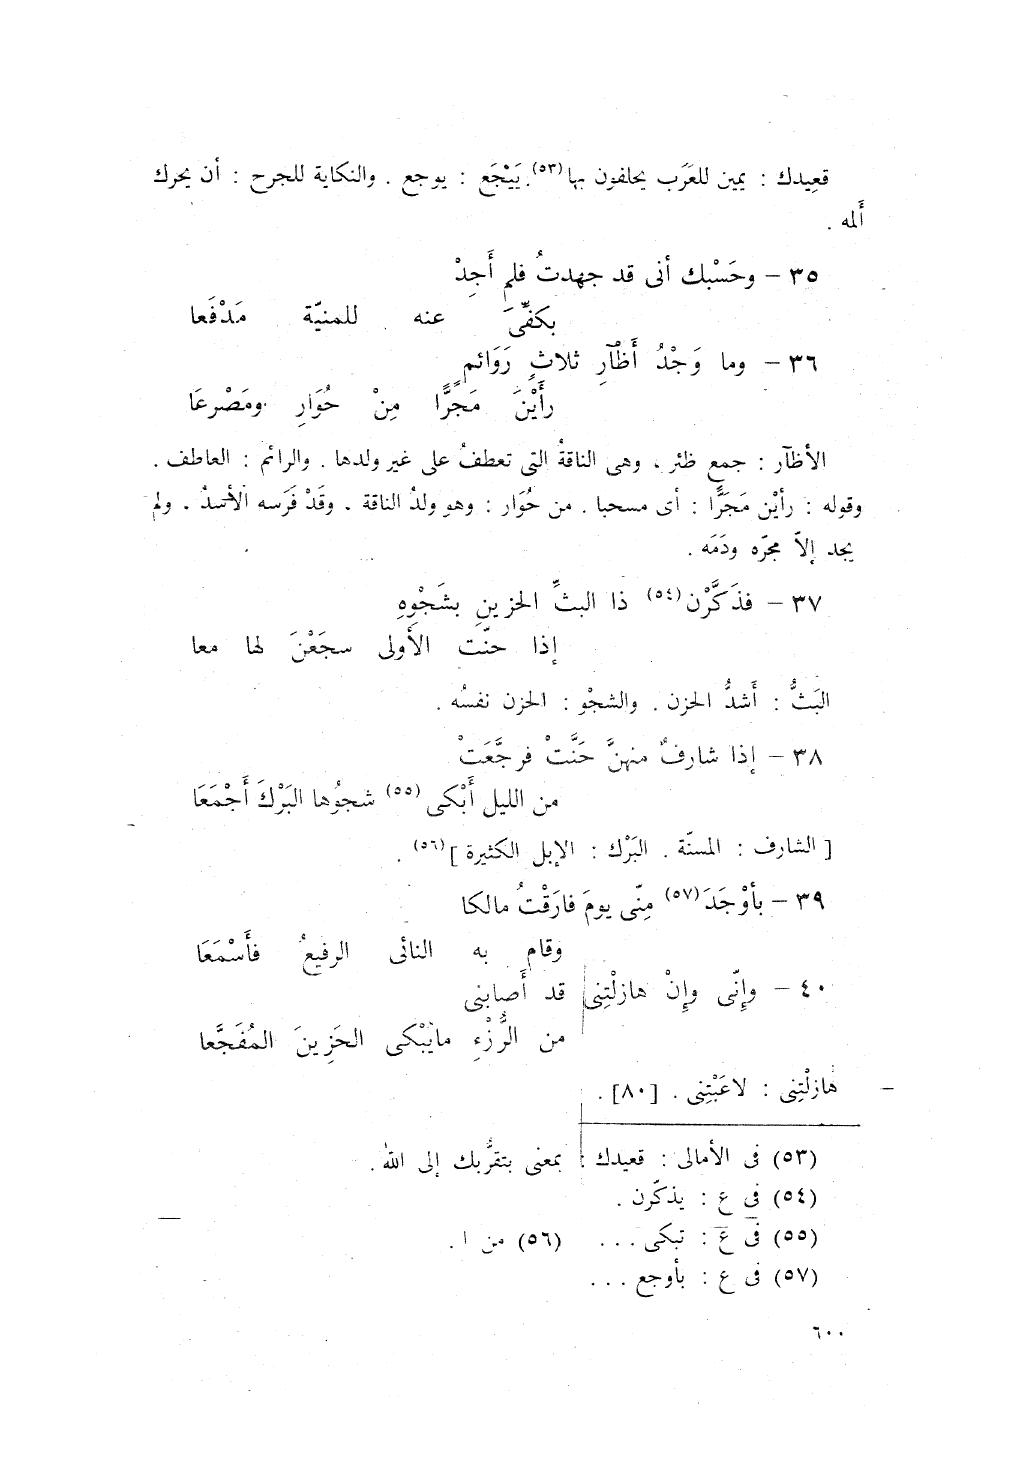 قعِيدك : يمين للعَرَب يحلفون بها(٥٣). يَيْجَع : يوجع . والنكاية للجرح : أن يحرك
أَلمه .
٣٥ – وحَسْبك أنى قد جهدتُ فلم أَجِدْ
بكفِّىَ عنه للمنيّة مَدْفَعا
٣٦ – وما وَجْدُ أَظْآرٍ ثلاثٍ رَوَائمٍ
رأَيْنَ مَجَرًّا مِنْ حُوَارِ ومَصْرعَا
الأظآر : جمع ظئر ، وهى الناقةُ التى تعطفُ على غير ولدها . والرائم : العاطف .
وقوله : رأيْن مَجَرًّا : أى مسحبا . من حُوَار : وهو ولدُ الناقة . وقَدْ فَرَسه الأسدُ . ولم
يجد إلاّ مجرّه ودَمَه .
٣٧ – فذَكَّرْن(٥٤) ذا البثِّ الحزينِ بشَجْوِهِ
إذا حنّت الأُولى سجَعْنَ لها معا
البَثُّ : أَشدُّ الحزن . والشجْو : الحزن نفسُه .
٣٨ – إذا شارفٌ منهنَّ حَنَّتْ فرجَّعَتْ
من الليل أَبْكى(٥٥) شجوُها البَرْكَ أَجْمَعَا
[ الشارف : المسنّة . البَرْك : الإبل الكثيرة ](٥٦) .
٣٩ – بأَوْجَدَ(٥٧) مِنّى يومَ فارَقْتُ مالكا
وقام به النائى الرفيعُ فأَسْمَعَا
٤٠ – وإِنّى وإِنْ هازلْتِنى قد أَصابنى
من الرُّزْءِ مايُبْكى الحَزِينَ المُفَجَّعا
هازلْتِنى : لاعَبْتِنى . [٨٠] .
(٥٣) فى الأمالى : قعيدك : بمعنى بتقرُّبك إلى اللّٰه .
(٥٤) فى ع : يذكّرن .
(٥٥) فى ع : تبكى ... (٥٦) من ا .
(٥٧) فى ع : بأوجع ...
٦٠٠